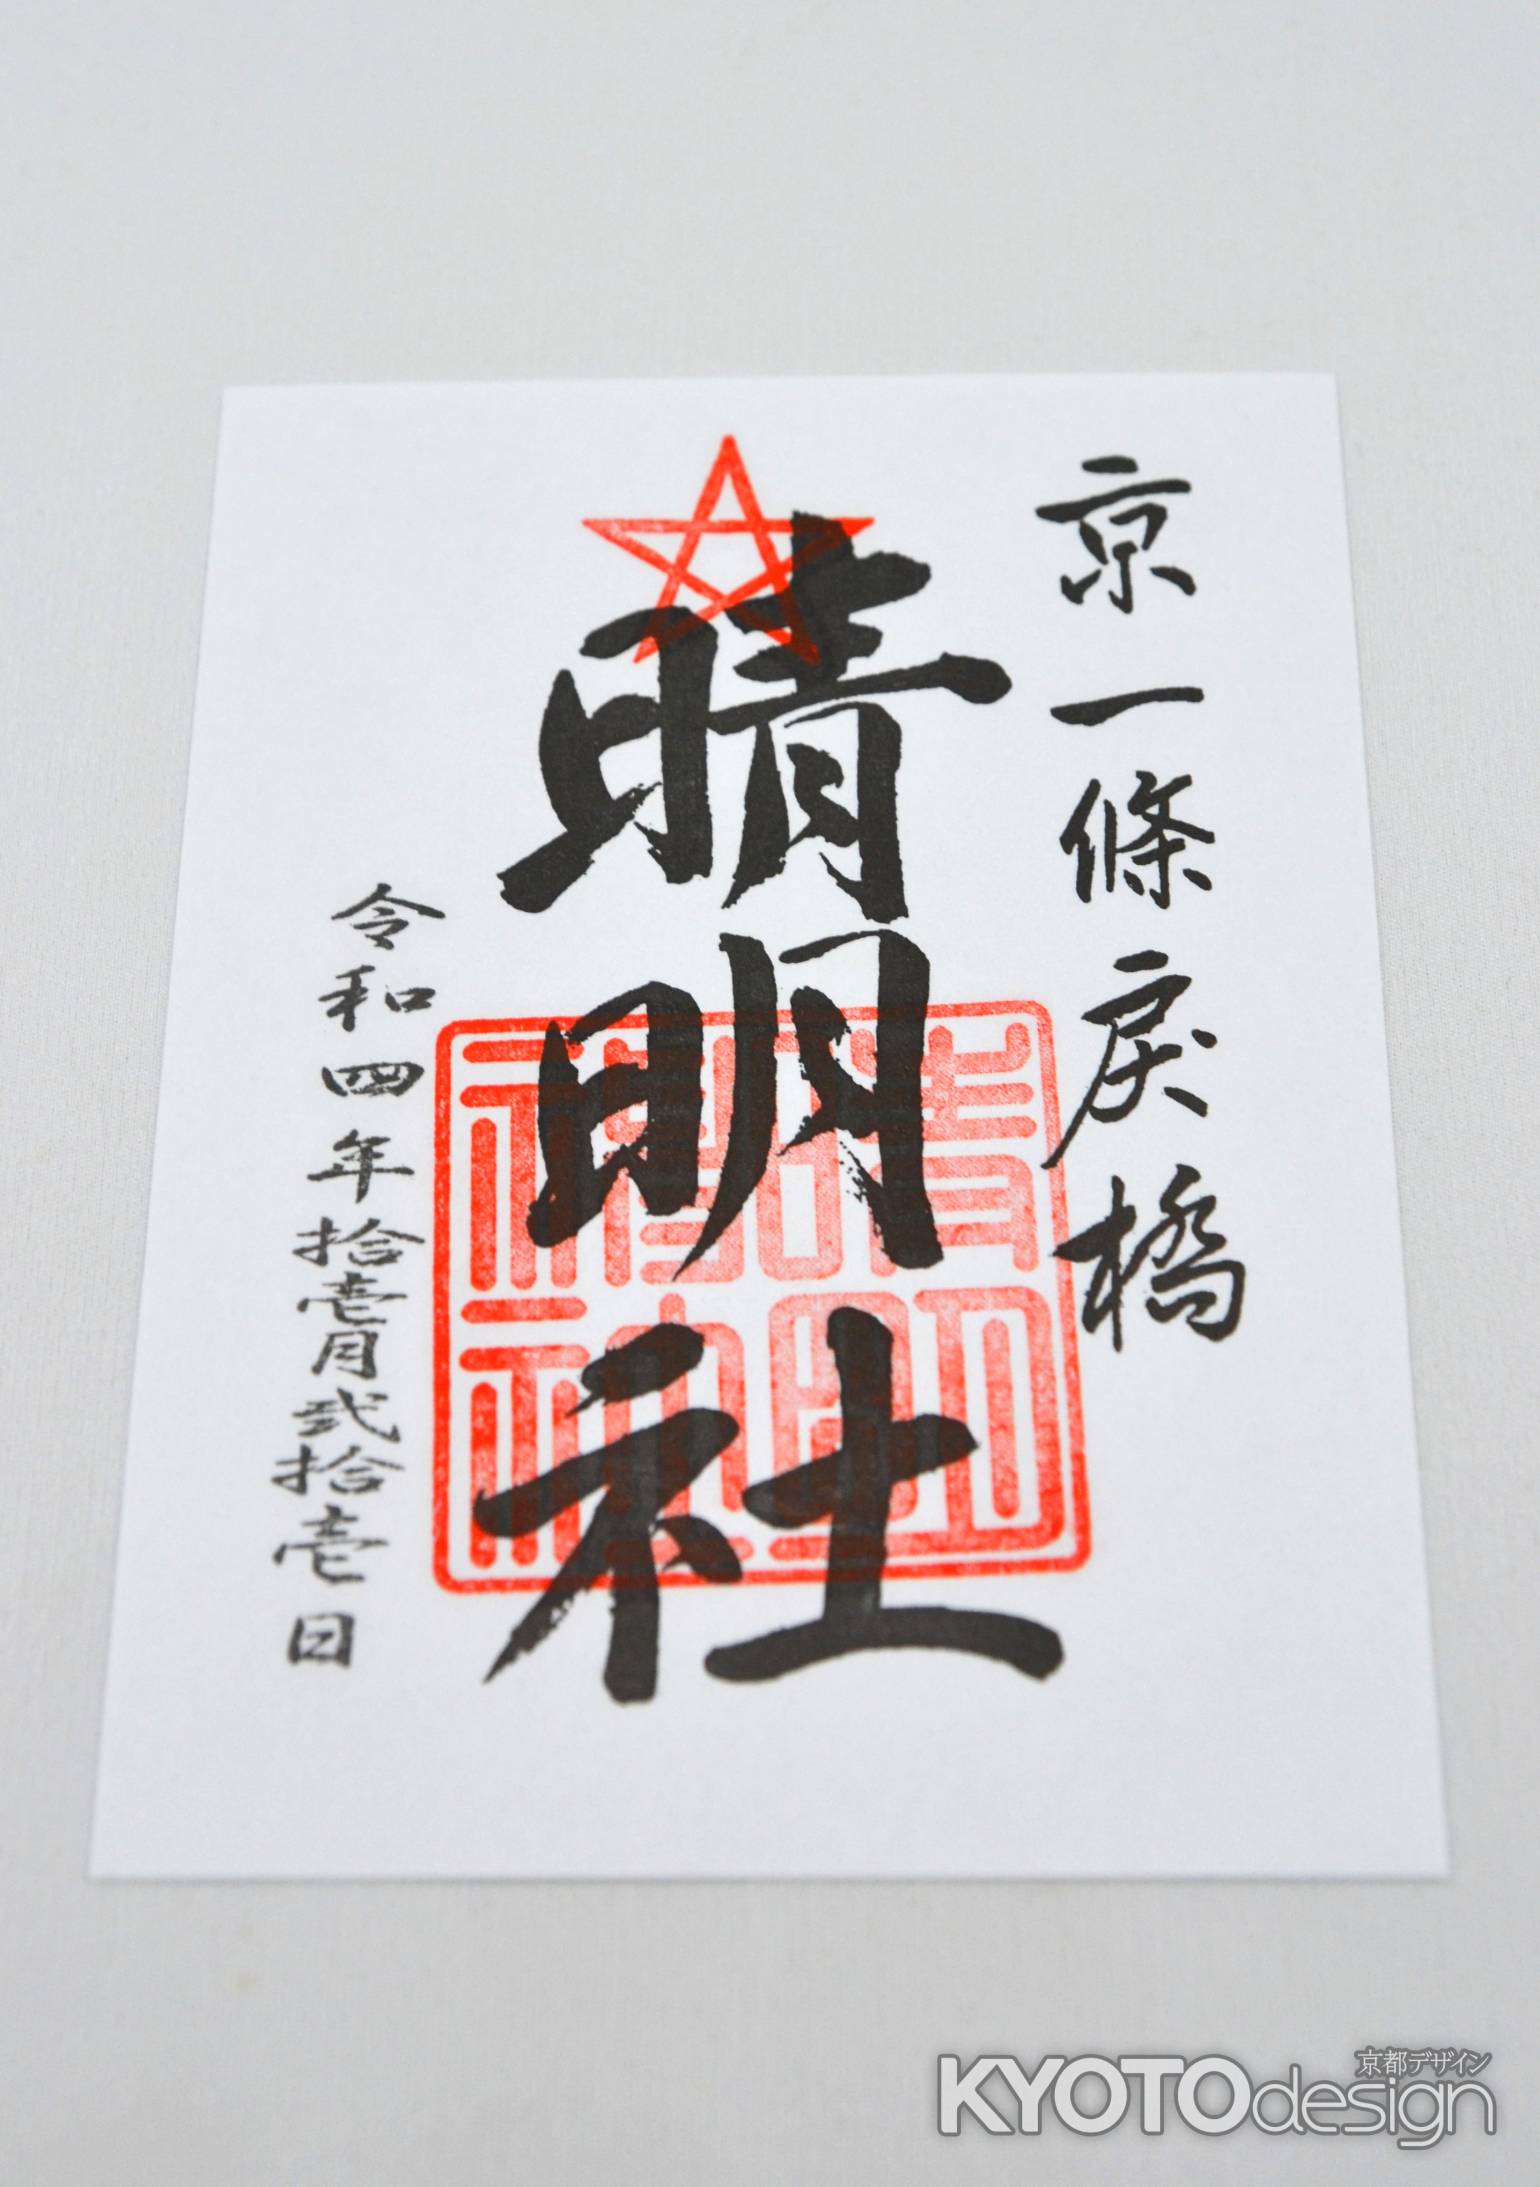 京一條戻橋
晴明社
晴明神社
令和四年拾壱月弐拾壱日
京都デザイン
KYOTOdesign